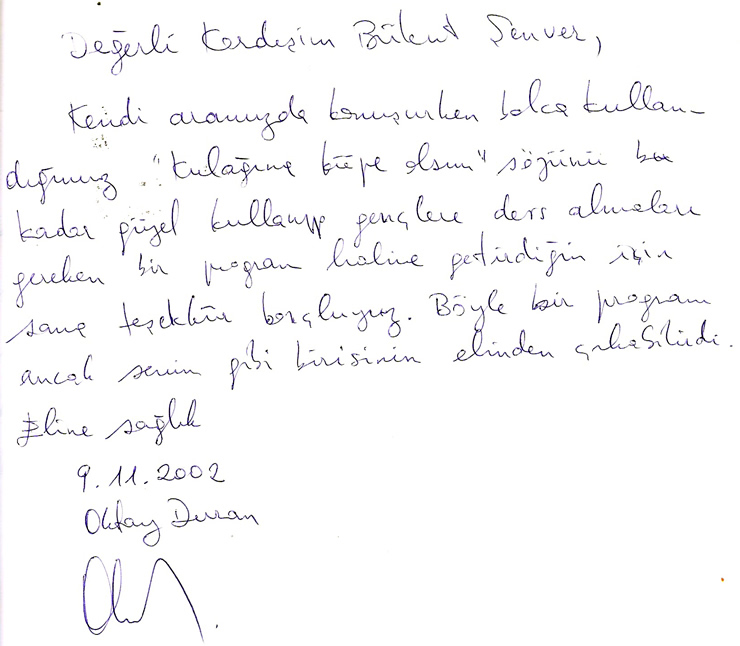 Değerli Kardeşim Bülent Şenver,
Kendi aramızda konuşurken bolca kullan-
dığımız "kulağına küpe olsun" sözünü bu
kadar güzel kullanıp gençlere ders almaları
gereken bir program haline getirdiğin için
sana teşekkür borçluyuz. Böyle bir program
ancak senin gibi birisinin elinden çıkabilirdi.
Eline sağlık
9.11.2002
Oktay Duran